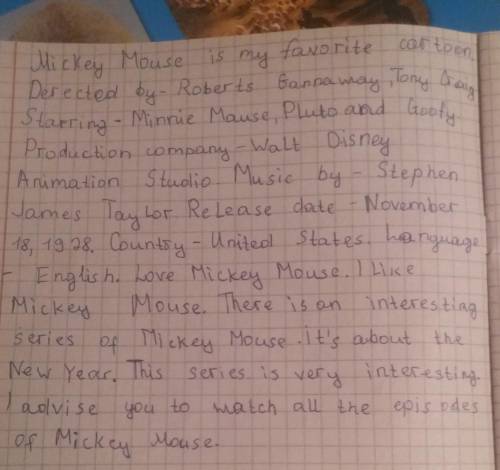 Mickey Mouse is my favorite cartoon.
Derected by - Roberts Gannaway, Tony Craig
Starring - Minnie Mause, Pluto and Goofy.
Production company - Walt Disney
Animation Studio. Music by - Stephen
James Taylor. Release date - November
18, 1928. Country - United States. Language
- English. Love Mickey Mouse. I like
Mickey Mouse. There is an interesting
series of Mickey Mouse. it's about the
New Year. This series is very interesting.
I advise you to watch all the episodes
of Mickey Mouse.